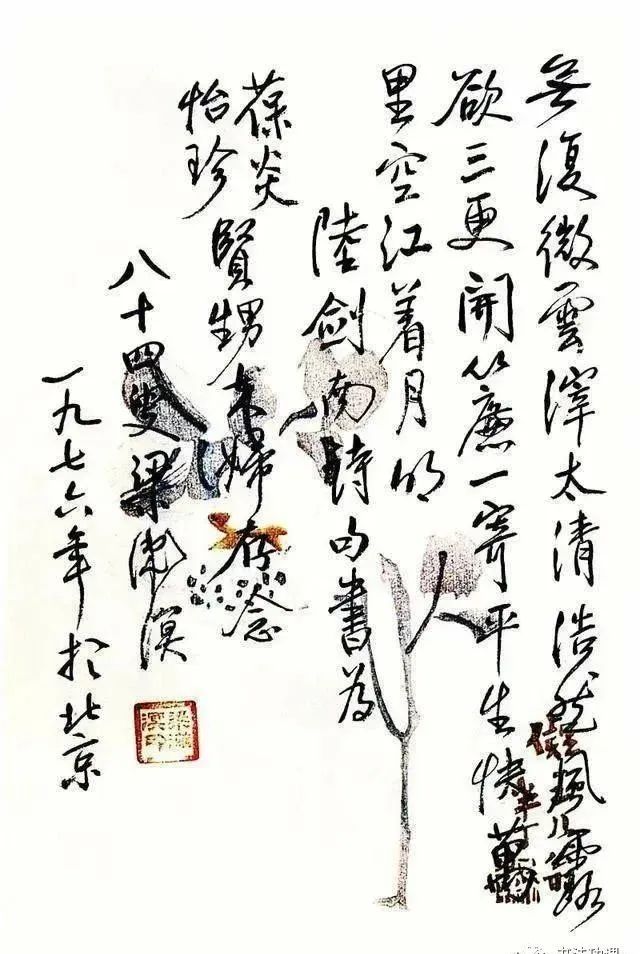 無復微雲滓太清浩然風露
欲三更開簾一寄平生快萬
里空江着月明
陸劍南詩句書為
葆炎
怡珍
賢甥夫婦存念
八十四叟梁漱溟
一九七六年扵北京
梁漱溟印